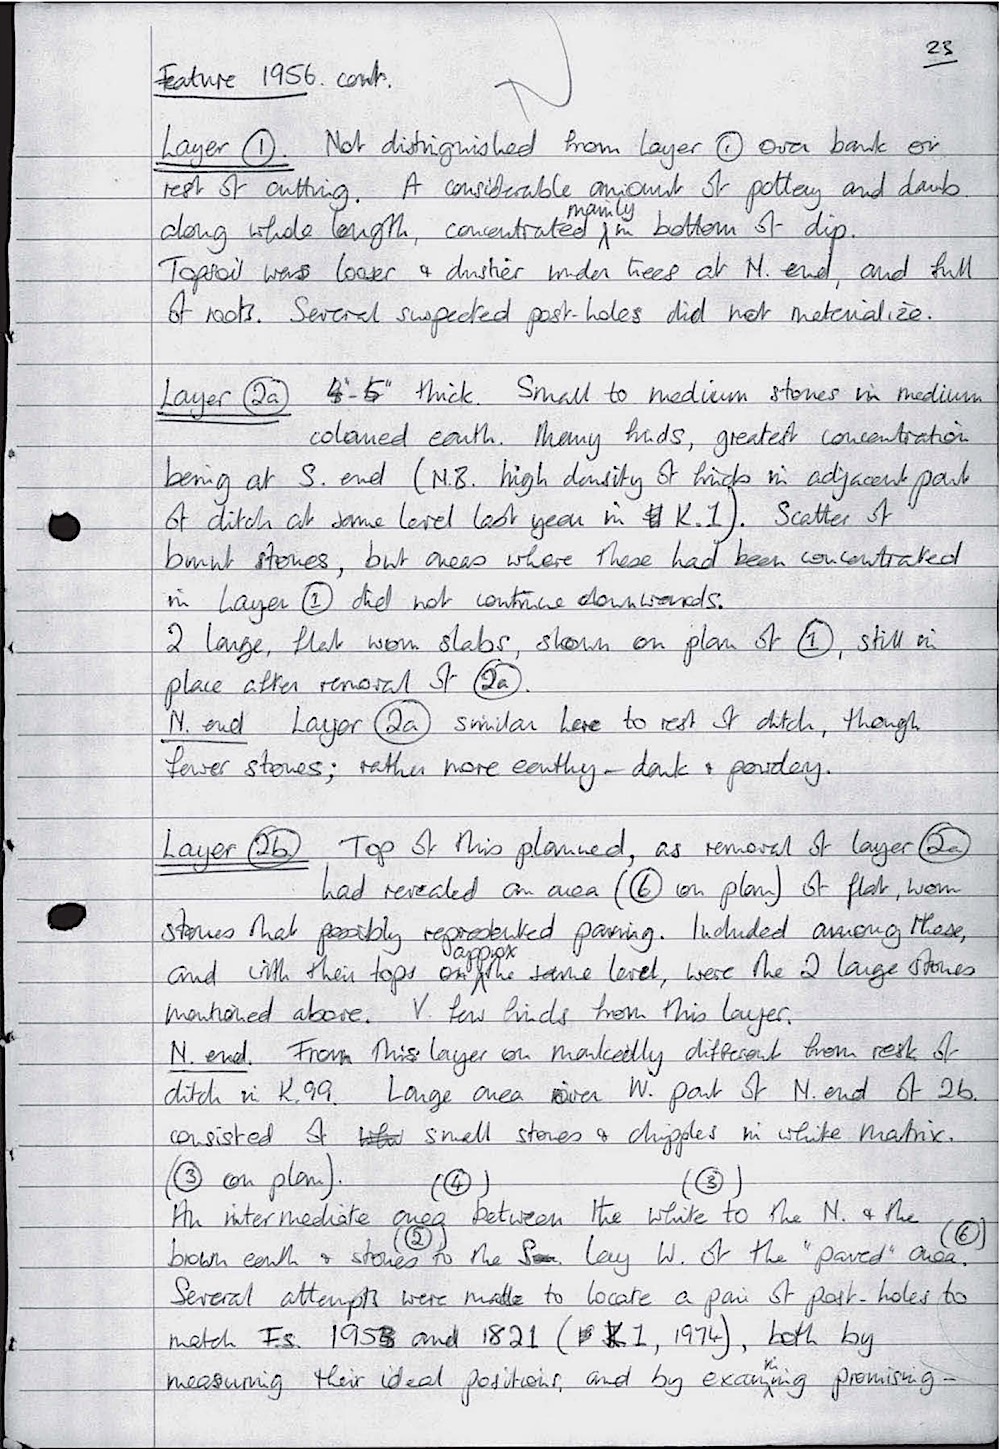 23
Feature 1956. cont.
Layer ① Not distinguished from layer ① over bank or
rest of cutting. A considerable amount of pottery and daub
along whole length, concentrated mainly in bottom of dip.
Topsoil was looser & dustier under trees at N. end, and full
of roots. Several suspected post-holes did not materialize.
Layer 2a 4"-5" thick. Small to medium stones in medium
coloured earth. Many finds, greatest concentration
being at S. end (N.B. high density of finds in adjacent part
of ditch at same level last year in K.1). Scatter of
burnt stones, but areas where these had been concentrated
in Layer ① did not continue downwards.
2 large, flat worn slabs, shown on plan of ①, still in
place after removal of 2a.
N. end Layer 2a similar here to rest of ditch, though
fewer stones; rather more earthy - dark & powdery.
Layer 2b Top of this planned, as removal of layer 2a
had revealed an area (⑥ on plan) of flat, worn
stones that possibly represented paving. Included among these,
and with their tops on approx the same level, were the 2 large stones
mentioned above. V. few finds from this layer.
N. end. From this layer on markedly different from rest of
ditch in K.99. Large area over W. part of N. end of 2b.
consisted of small stones & chipples in white matrix.
(③ on plan). (④) (③)
An intermediate area between the white to the N. & the
(②) (⑥)
brown earth & stones to the S. lay W. of the "paved" area.
Several attempts were made to locate a pair of post-holes to
match Fs. 1953 and 1821 (K1, 1974), both by
measuring their ideal positions, and by examining promising-